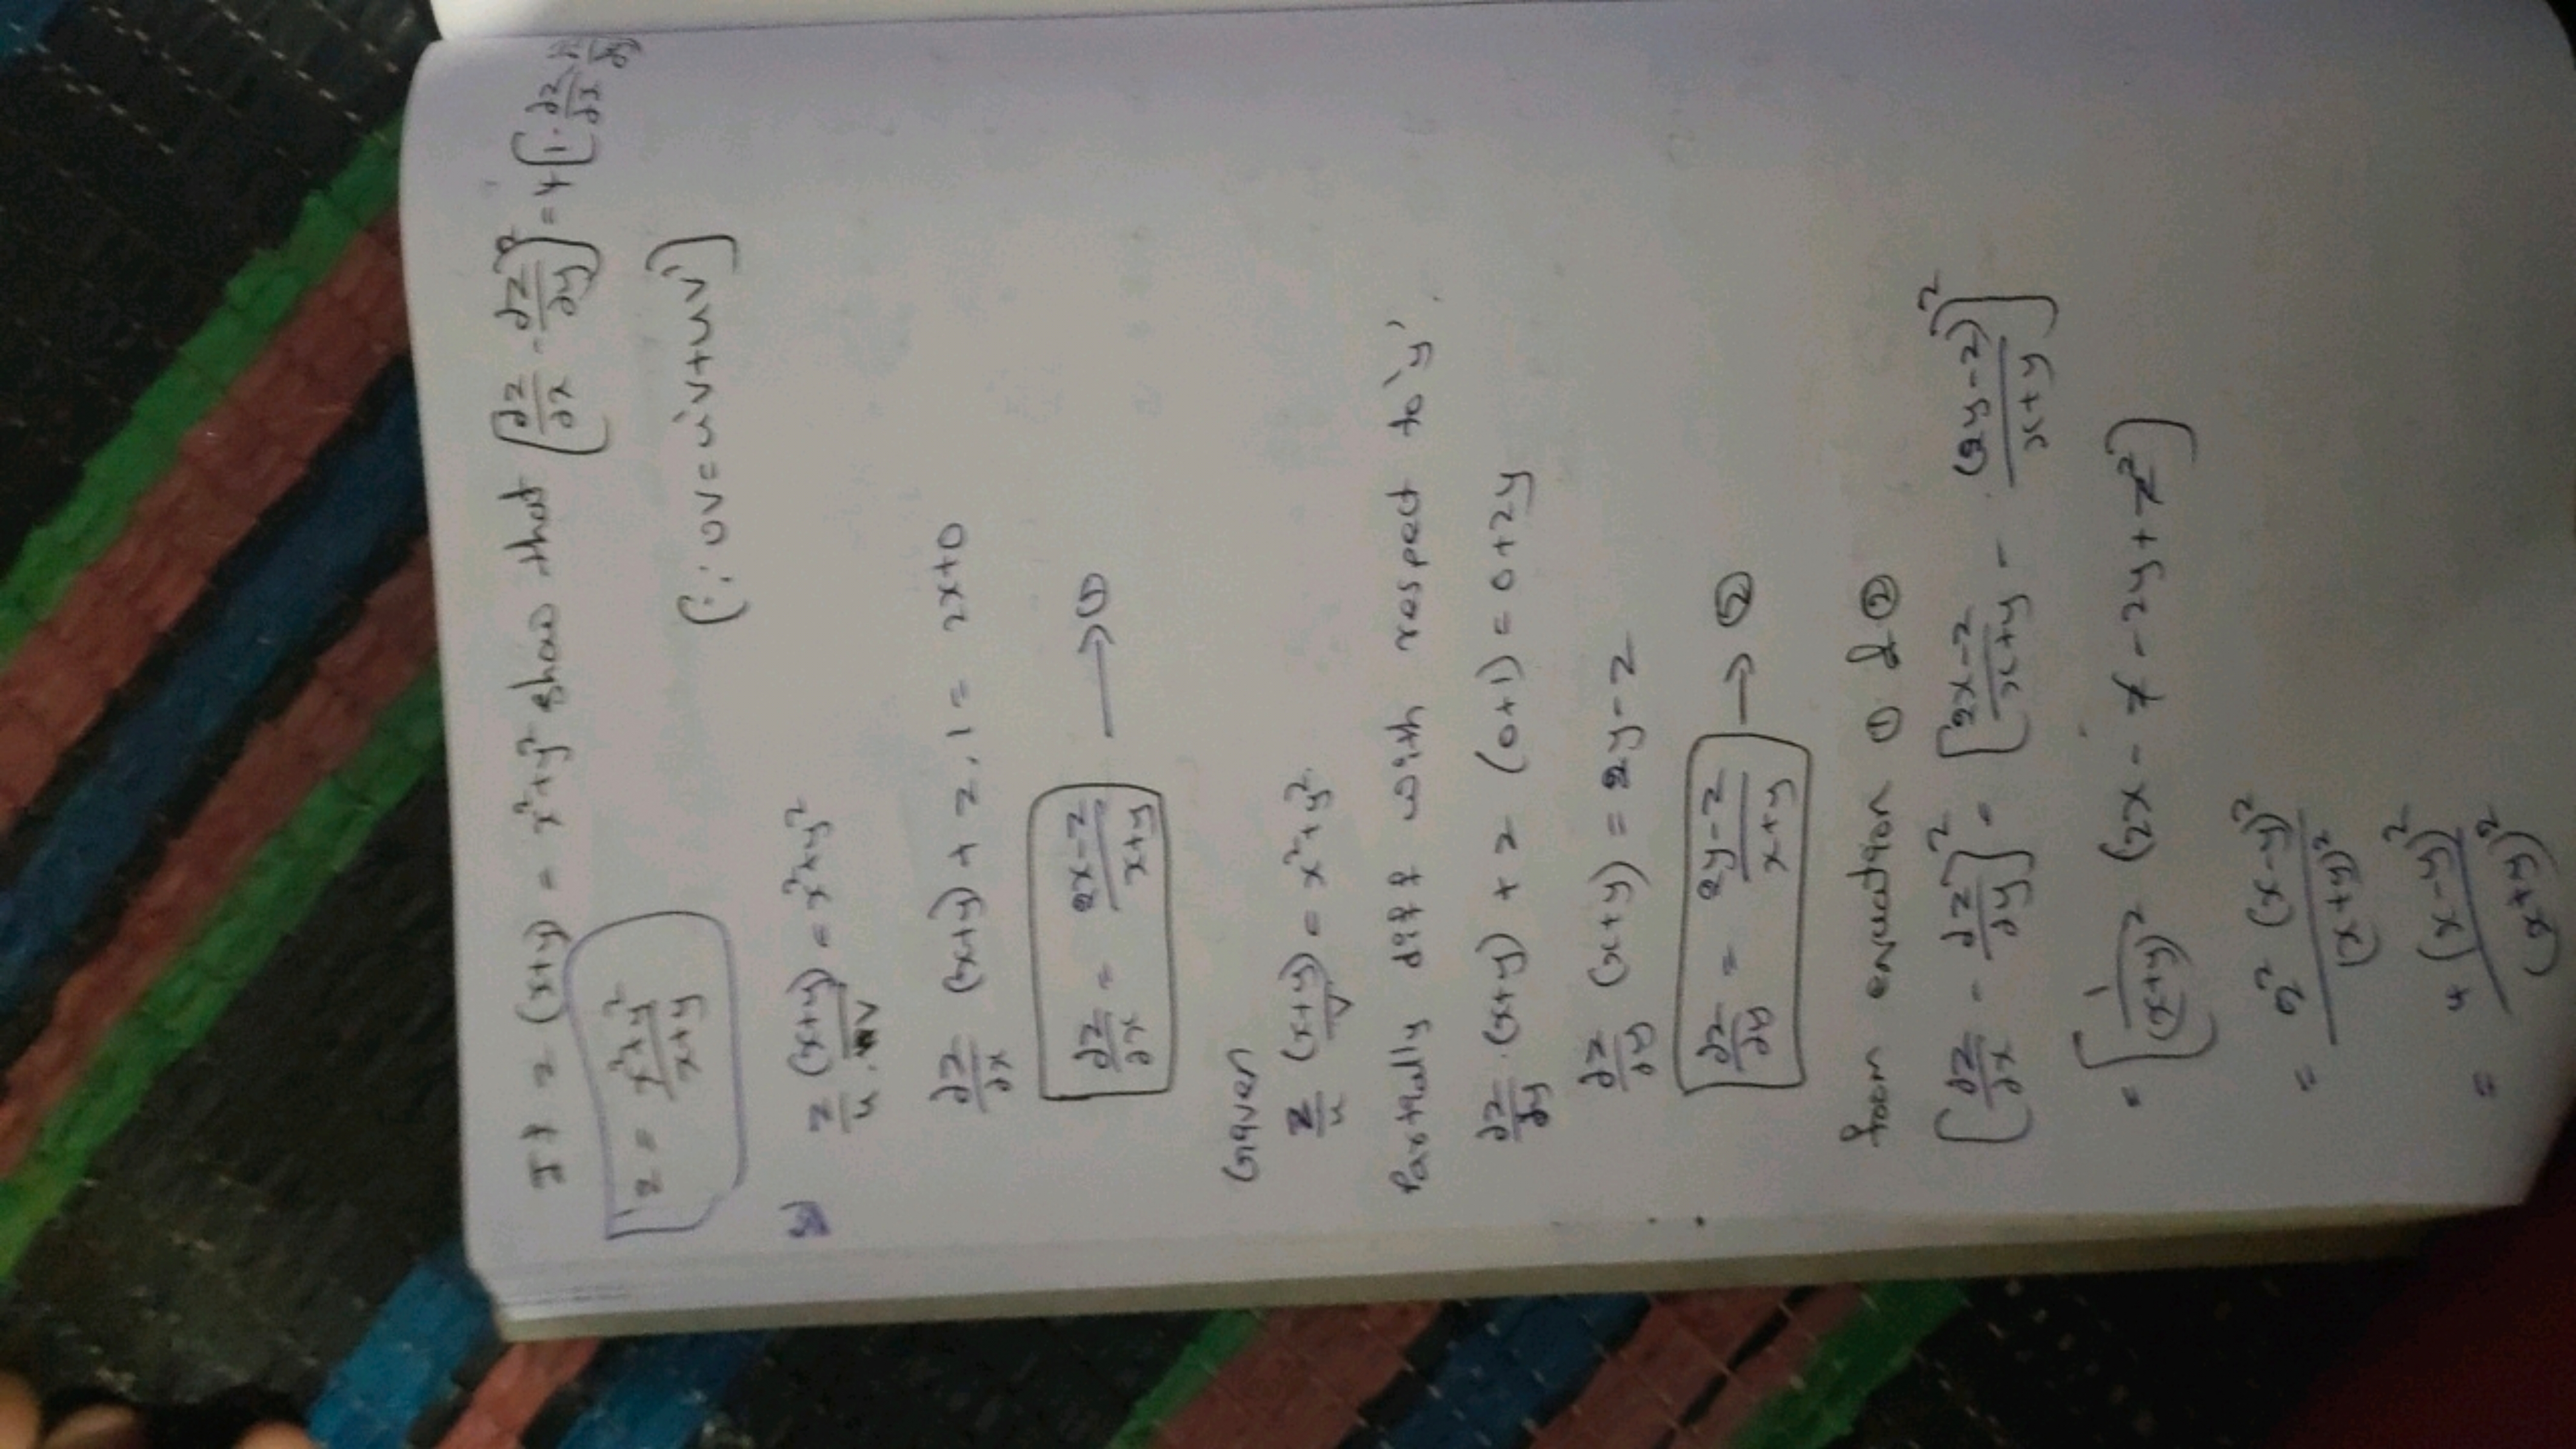 If z (x+y) = x²+y² show that [∂z/∂x - ∂z/∂y]² = 4 [1 - ∂z/∂x
z = x²+y²/x+y
(∵ uv = u'v+uv')
z/u (x+y)/v = x²+y²
∂z/∂x (x+y) + z.1 = 2x+0
∂z/∂x = 2x-z/x+y → ①
Given
z/u (x+y)/v = x²+y².
Partially diff with respect to 'y'.
∂z/∂y.(x+y) + z (0+1) = 0+2y
∂z/∂y (x+y) = 2y-z
∂z/∂y = 2y-z/x+y → ②
from equation ① & ②
[∂z/∂x - ∂z/∂y]² = [2x-z/x+y - (2y-z)/x+y]²
= [1/(x+y)² (2x - z - 2y + z²)
= 2² (x-y)²/(x+y)²
= 4 (x-y)²/(x+y)²